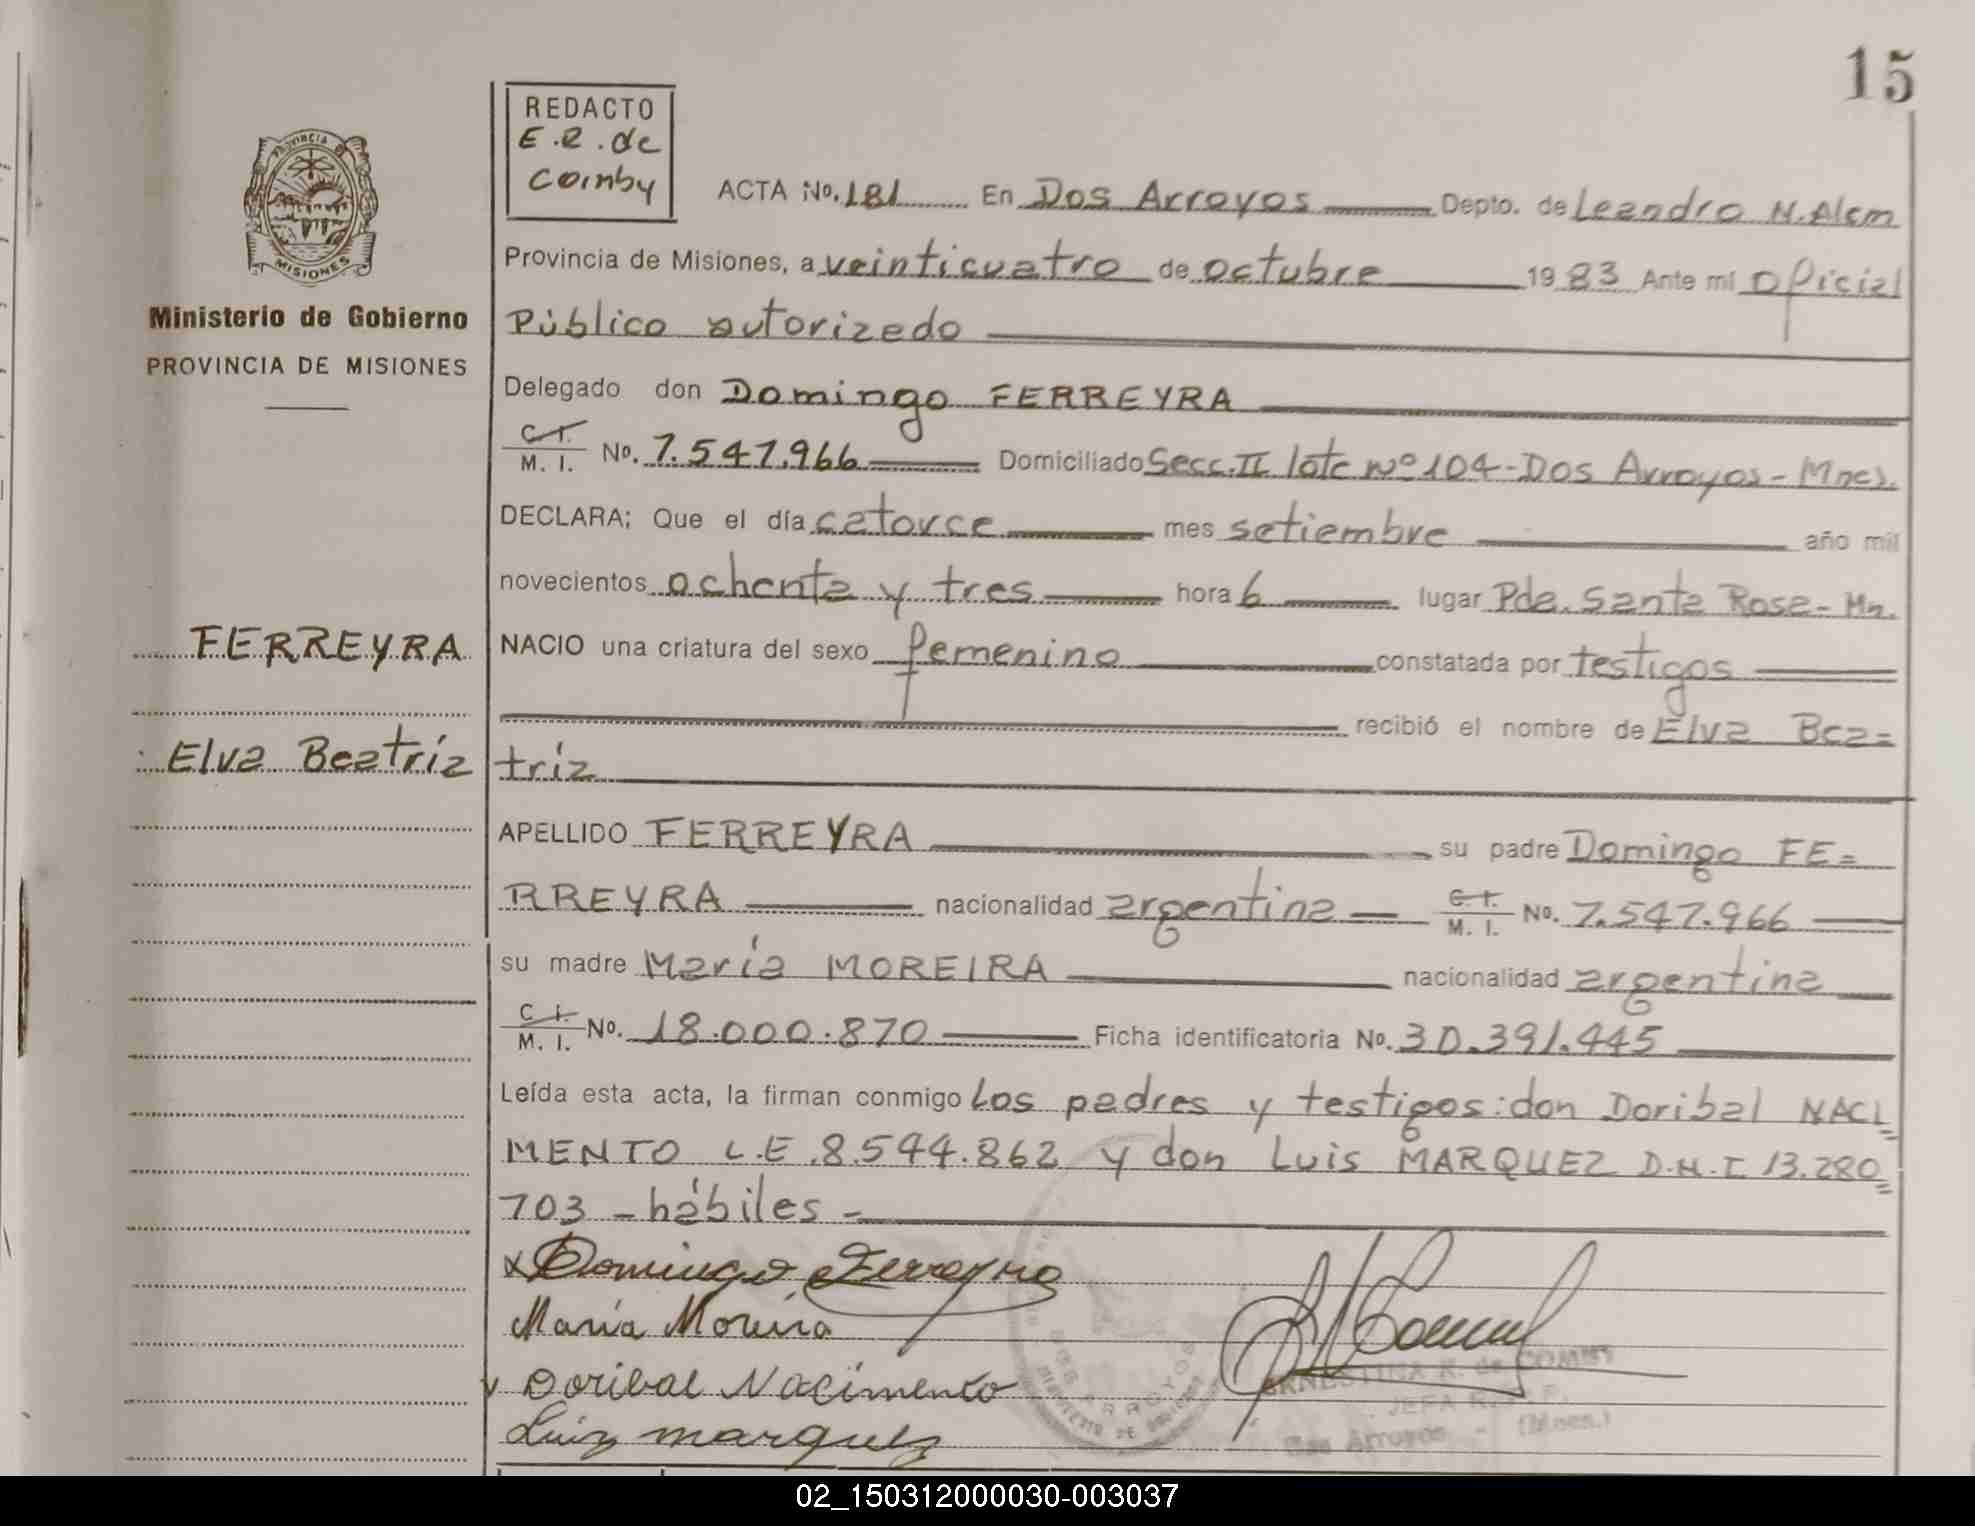 15
REDACTO
E.R. de
Coinby
ACTA No. 181 En Dos Arroyos Depto. de Leandro N. Alem
Provincia de Misiones, a veinticuatro de octubre 19 83 Ante mi Oficial
Público autorizado
Delegado don Domingo FERREYRA
C. I.
M. I. No. 7.547.966 Domiciliado Secc. II lote Nº 104-Dos Arroyos-Mnes.
DECLARA; Que el día catorce mes setiembre año mil
novecientos ochenta y tres hora 6 lugar Pda. Santa Rosa-Mn.
NACIO una criatura del sexo femenino constatada por testigos
recibió el nombre de Elva Bea=
triz
APELLIDO FERREYRA su padre Domingo FE=
RREYRA nacionalidad argentina C. I.
M. I. No. 7.547.966
su madre María MOREIRA nacionalidad argentina
C. I.
M. I. No. 18.000.870 Ficha identificatoria No. 30.391.445
Leída esta acta, la firman conmigo los padres y testigos: don Doribal NACI=
MENTO L.E. 8.544.862 y don Luis MARQUEZ D.N.I 13.280=
703 - hábiles -
x Domingo Ferreyra
María Moreira
Doribal Nacimento
Luiz marquez
ERNESTINA R. de COINBY
JEFA R. P.
Dos Arroyos - (Mnes.)
DOS ARROYOS
PROVINCIA
MISIONES
Ministerio de Gobierno
PROVINCIA DE MISIONES
FERREYRA
Elva Beatriz
02_150312000030-003037